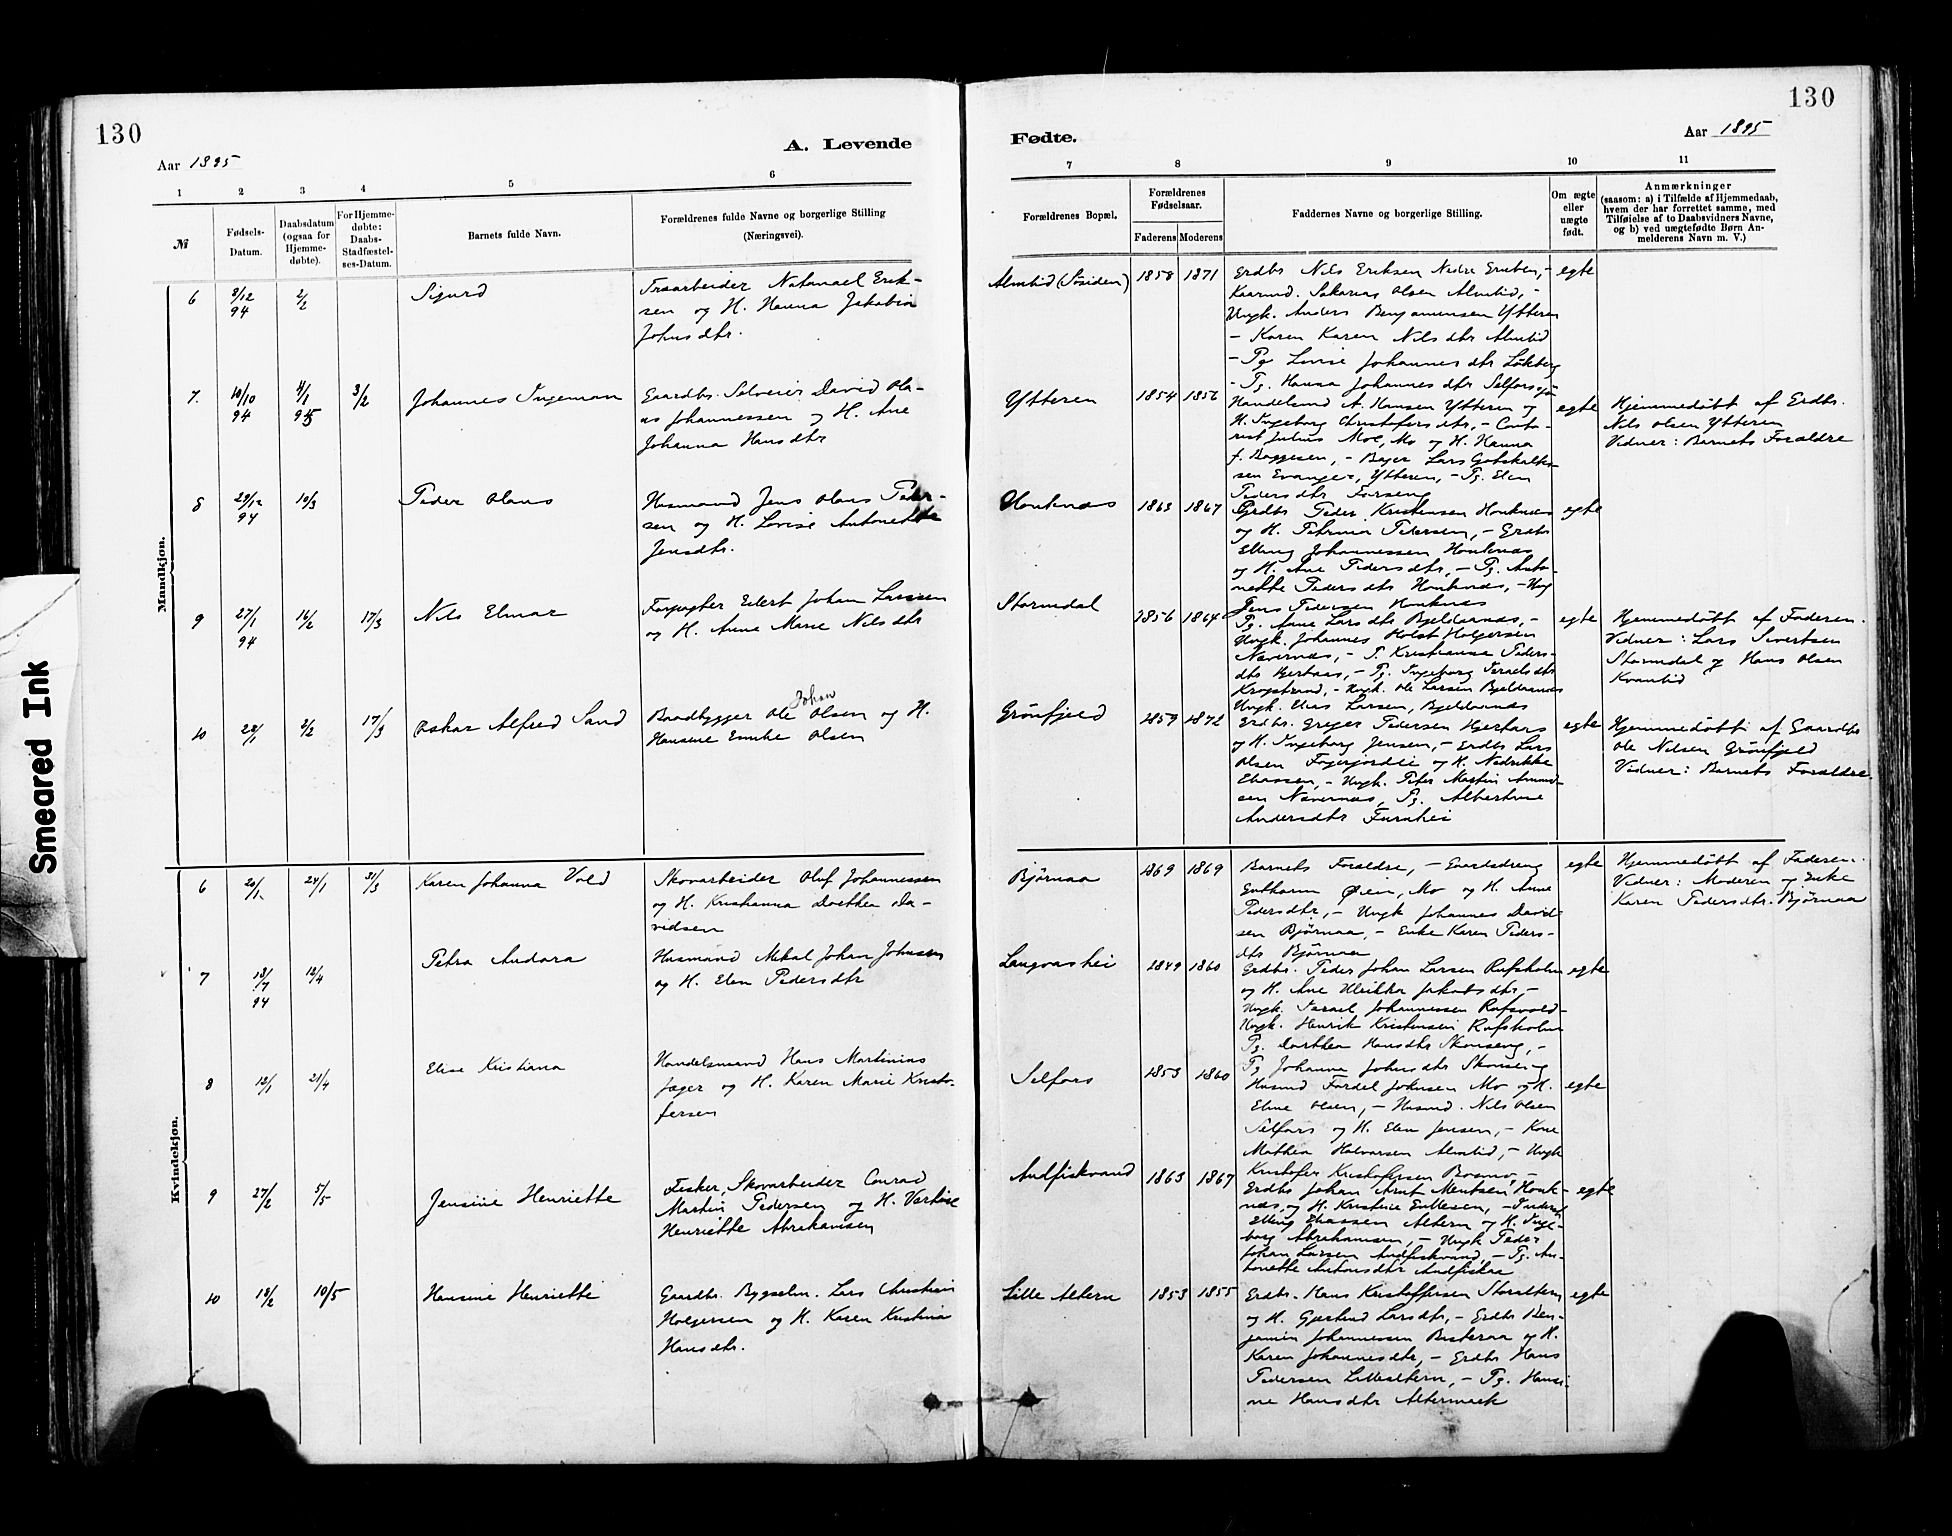 130
130
A. Levende
Fødte.
Aar 1895
Aar 1895
1 2 3 4 5 6 7 8 9 10 11
№
Fødsels-
Datum.
Daabsdatum
(ogsaa for
Hjemme-
døbte).
For Hjemme-
døbte:
Daabs-
Stadfæstel-
ses-Datum.
Barnets fulde Navn.
Forældrenes fulde Navne og borgerlige Stilling
(Næringsvei).
Forældrenes Bopæl.
Forældrenes
Fødselsaar.
Faderens Moderens
Faddernes Navne og borgerlige Stilling.
Om ægte
eller
uægte
født.
Anmærkninger
(saasom: a) i Tilfælde af Hjemmedaab,
hvem der har forrettet samme, med
Tilføielse af to Daabsvidners Navne,
og b) ved uægtefødte Børn An-
melderens Navn m. V.)
Mandkjøn.
6
9/12
94
2/2
Sigurd
Træarbeider Natanael Erik-
sen og H. Hanna Jakobin
Johnsdtr.
Almlid (Søsiden)
1858 1871
Erdbr Nils Eriksen Nedre
Kaarmd. Sakarias Olsen Almlid,-
Ungk. Anders Benjaminsen Ytteren
- Konen Karen Nilsdtr Almlid
- Pg Lovise Johannesdtr
- Pg. Hanna Johannesdtr Selfors
egte
7.
10/10
94
4/1
95
3/2
Johannes Ingeman
Gaardbr. Selveier David Ola-
us Johannessen og H. Ane
Johanna Hansdtr
Ytteren
1854 1856
Handelsmd A. Hansen Ytteren og
H. Ingeborg Christofersdtr, - Conto-
rist Julius Moe, Mo og H. Hanna
f. Baggesen, - Bager Lars Gotskalk-
sen Evanger, Ytteren, - Pg. Elen
Pedersdtr Forseng
egte
Hjemmedøbt af Erdbr.
Nils Olsen Ytteren
Vidner: Barnets Forældre
8
29/12
94
10/3
Peder Olaus
Husmand Jens Olaus Peder-
sen og H. Lovise Antonette
Jensdtr.
Hauknæs
1863 1867
Grdbr Peder Kristensen Hauknæs
og H. Petrina Pedersen, - Grdbr
Elling Johannessen Hauknæs
og H. Ane Pedersdtr, - Pg. Anto-
nette Pedersdtr Hauknæs, - Ung
Jens Pedersen Hauknæs
egte
9
27/1
94
16/2
17/3
Nils Elmar
Forpagter Edert Johan Larsen
og H. Anne Marie Nilsdtr
Stormdal
1856 1864
Pg. Anne Larsdtr Bjeldaanæs, -
Ungk. Johannes Holst Holgersen
Nævernæs, - P. Kristianse Peders-
dtr Hjertaas, - Pg. Ingeborg Israelsdtr
Krogstrand, - Ungk. Ole Larsen Bjeldaanæs
Ungk. Elias Larsen, Bjeldaanæs
egte
Hjemmedøbt af Faderen.
Vidner: Lars Sivertsen
Stormdal og Hans Olsen
Kvanlid
10
28/1
2/2
17/3
Oskar Alfred Sand
Johan
Baadbygger Ole Olsen og H.
Hansine Emilie Olsen
Grönfjeld
1859 1872
Erdbr. Greger Pedersen Hjertaas
og H. Ingeborg Jensen, - Erdbr Lars
Olsen Fagerjordlie og H. Nedrikke
Eliassen, - Ungk. Peter Martin Amund-
sen Nævernæs, Pg. Albertine
Andersdtr Furuhei
egte
Hjemmedøbt af Gaardbr
Ole Nilsen Grönfjeld
Vidner: Barnets Forældre.
Kvindekjøn.
6
20/1.
24/1
31/3
Karen Johanna Vold
Skovarbeider Oluf Johannessen
og H. Kristianna Dorthea Da-
vidsen
Bjørnaa
1869 1869
Barnets Forældre, - Gaardsdreng
Øien, Mo og H. Anne
Pedersdtr, - Ungk Johannes David-
sen Bjørnaa, - Enke Karen Peders-
dtr Bjørnaa
egte
Hjemmedøbt af Faderen.
Vidner: Moderen og Enke
Karen Pedersdtr. Bjørnaa
7
13/7
94
12/4
Petra Andora
Husmand Mekal Johan Johnsen
og H. Elen Pedersdtr
Langvashei
1849 1860
Erdbr. Peder Johan Larsen Rufsholm
og H. Ane Ulrikka Jakobsdtr -
Ungk. Israel Johannessen Rufsvold -
Ungk. Henrik Kristensen Rufsholm
Pg. Dorthea Hansdtr Skonseng, -
Pg Johanna Johnsdtr Skonseng
egte
8
12/1
21/4
Elise Kristiana
Handelsmand Hans Martinius
Jæger og H. Karen Marie Kristo-
fersen
Selfors
1853 1860
Husmd Fordel Johnsen Mo og H.
Eline Olsen, - Husmd. Nils Olsen
Selfors og H. Elen Jensen, - Kone
Mathea Halvorsen Almlid, - Ungk
Kristofer Kristoffersen Bosmo, -
egte
9
27/2
5/5
Jensine Henriette
Fisker, Skovarbeider Conrad
Martin Pedersen og H.
Henriette Abrahamsen
Andfiskvand
1863 1867
Erdbr Johan Arnt Mentsen Hauk-
næs, og H. Kristine
Elling Eliassen Altern og H. Inge-
borg Abrahamsen, - Ungk Peder
Johan Larsen Andfiskvand, - Pg. An-
tonette Antonsdtr Andfiskaa
egte
10
18/2
10/5
Hansine Henriette
Gaardbr. Bygselm. Lars Christian
Holgersen og H. Karen Kristina
Hansdtr.
Lille Altern
1853 1855
Erdbr. Hans Kristoffersen Storaltern
og H. Gjertrud Larsdtr, - Erdbr Ben-
jamin Johannessen Basteraa og H.
Karen Johannesdtr, - Erdbr Hans
Pedersen Lillealtern, - Pg. Hansi-
ne Hansdtr Altermark
egte
Smeared Ink